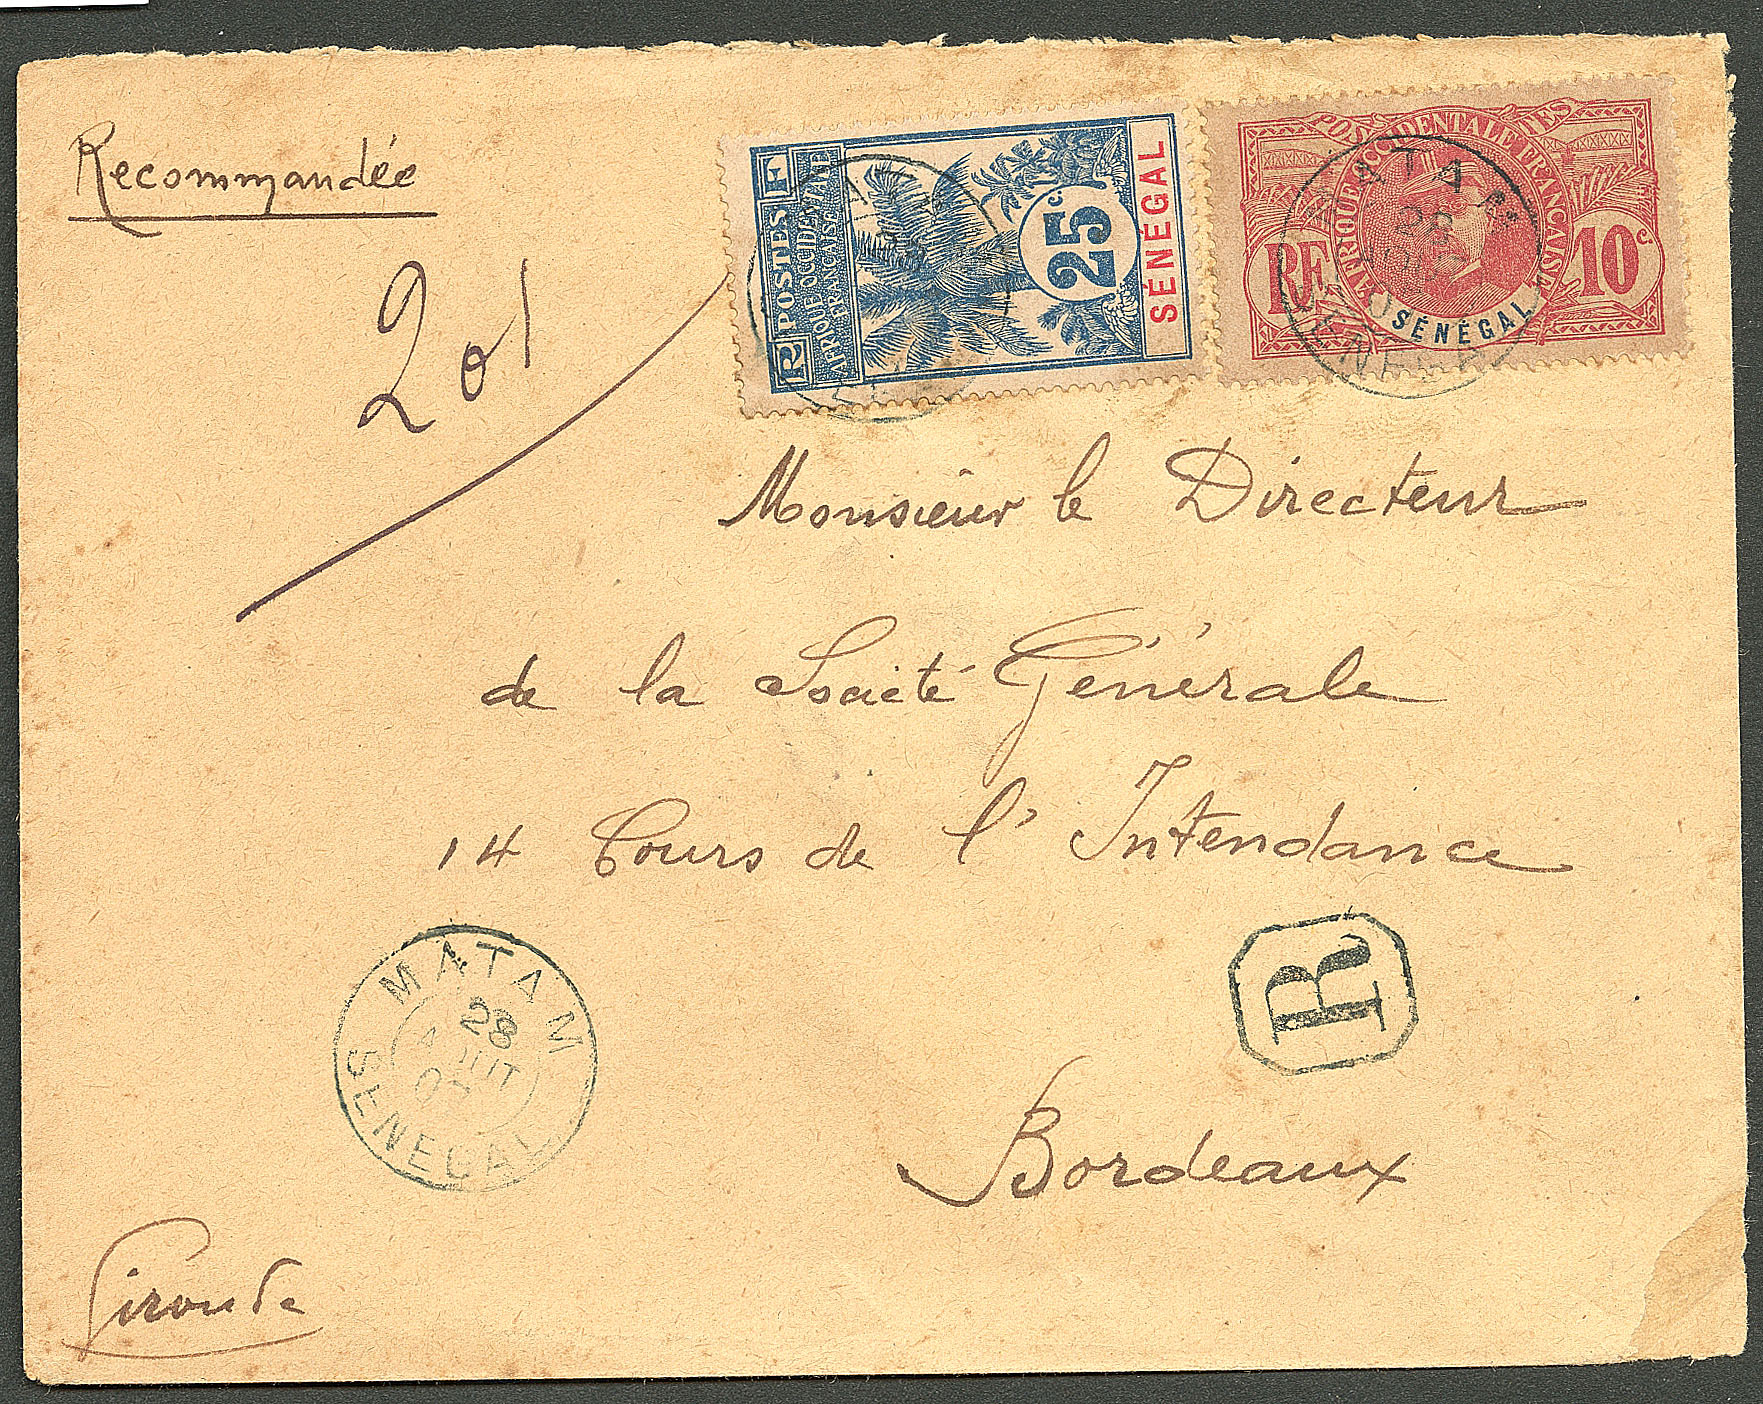 Recommandée
201
RF POSTES
AFRIQUE OCCIDENTALE
FRANÇAISE
25c
SÉNÉGAL
POSTES
AFRIQUE OCCIDENTALE FRANÇAISE
RF
10c
SÉNÉGAL
MATAM
28
AOUT
SENEGAL
Monsieur le Directeur
de la Société Générale
14 Cours de l'Intendance
R
MATAM
28
AOUT
SENEGAL
Bordeaux
Gironde